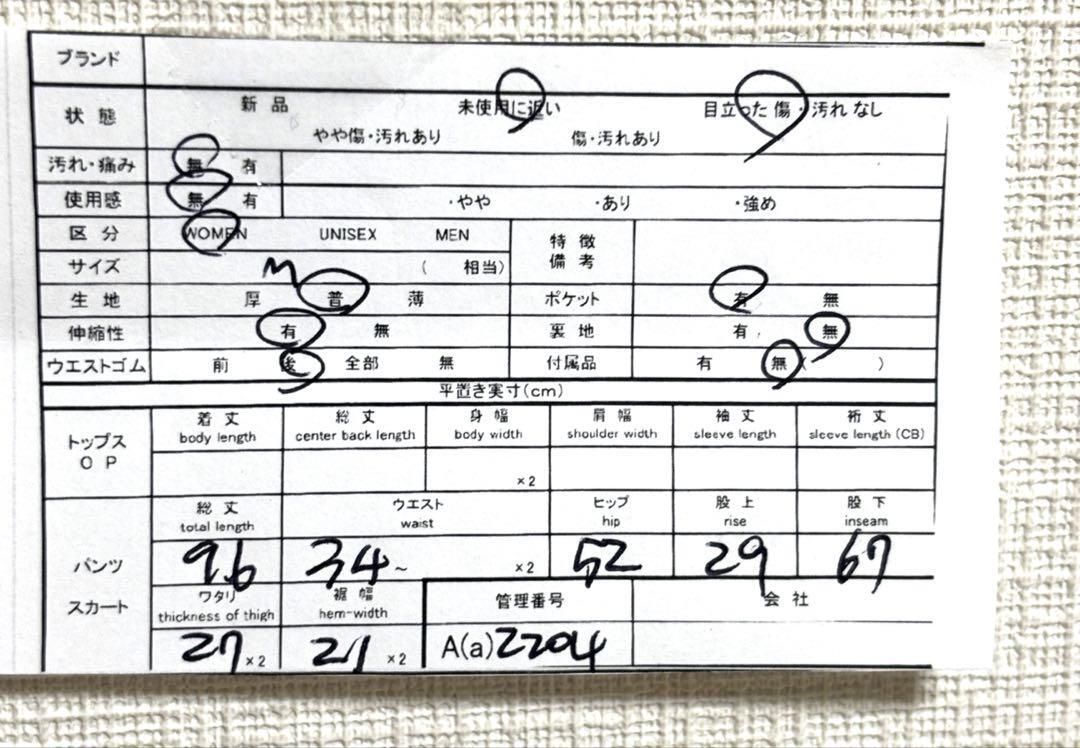 ブランド
状態 新品 未使用に近い 目立った傷・汚れなし
やや傷・汚れあり 傷・汚れあり
汚れ・痛み 無 有
使用感 無 有 ・やや ・あり ・強め
区分 WOMEN UNISEX MEN 特徴備考
サイズ M ( 相当)
生地 厚 普 薄 ポケット 有 無
伸縮性 有 無 裏地 有 無
ウエストゴム 前 後 全部 無 付属品 有 無( )
平置き実寸(cm)
トップス OP
着丈 総丈 身幅 肩幅 袖丈 裄丈
body length center back length body width shoulder width sleeve length sleeve length (CB)
×2
パンツ スカート
総丈 ウエスト ヒップ 股上 股下
total length waist hip rise inseam
96 34~ ×2 52 29 67
ワタリ 裾幅 管理番号 会社
thickness of thigh hem-width
27 ×2 21 ×2 A(a)2204